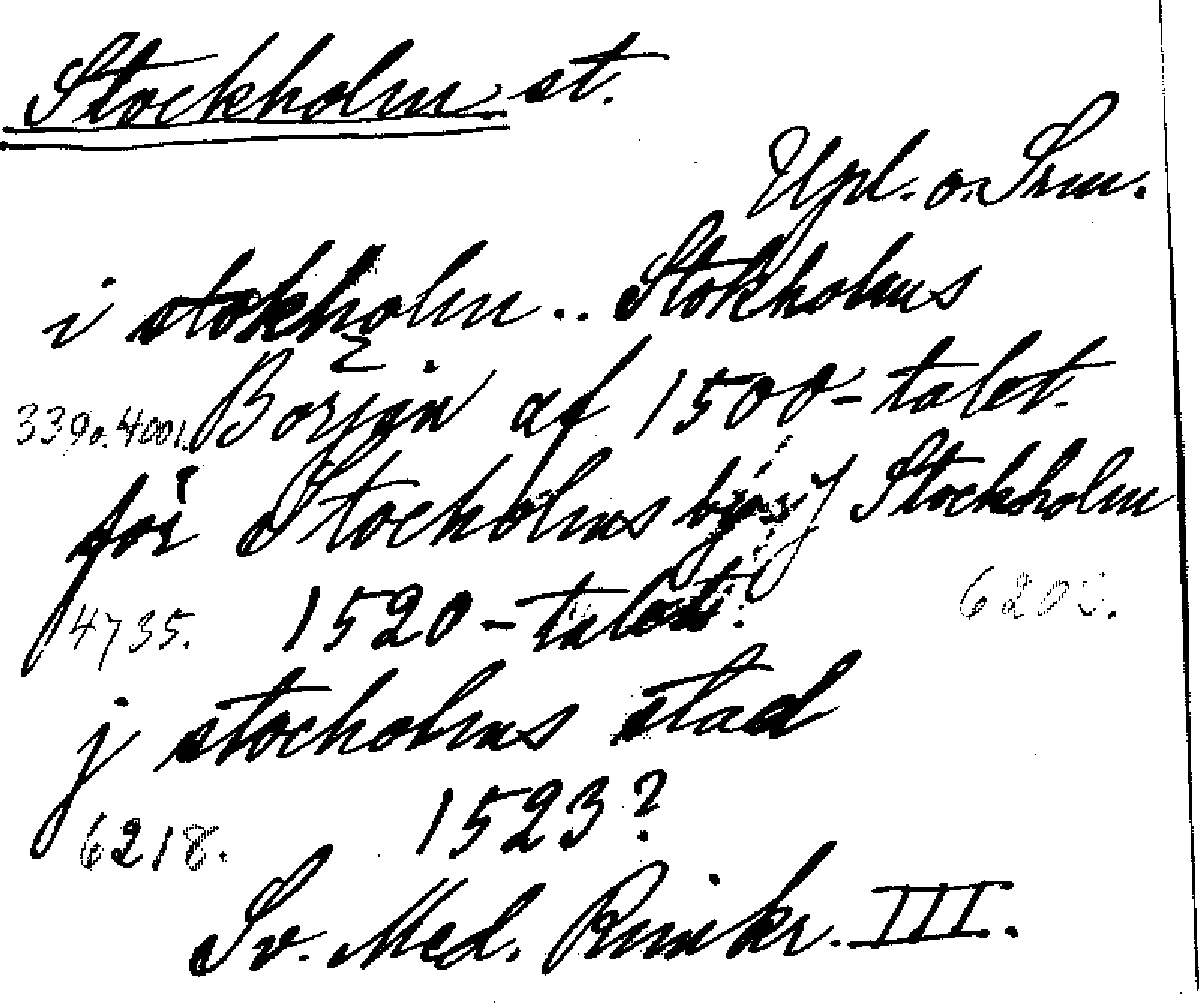 Stockholm st.
Upl. o. Srm.
i stokholm .. Stokholms
339 o. 4001. Börjın af 1500-talet.
för Stocholms by j Stockholm
4735. 1520-talet. 6203.
j stocholms stad
1523?
6218.
Sv. Med. Rimkr. III.